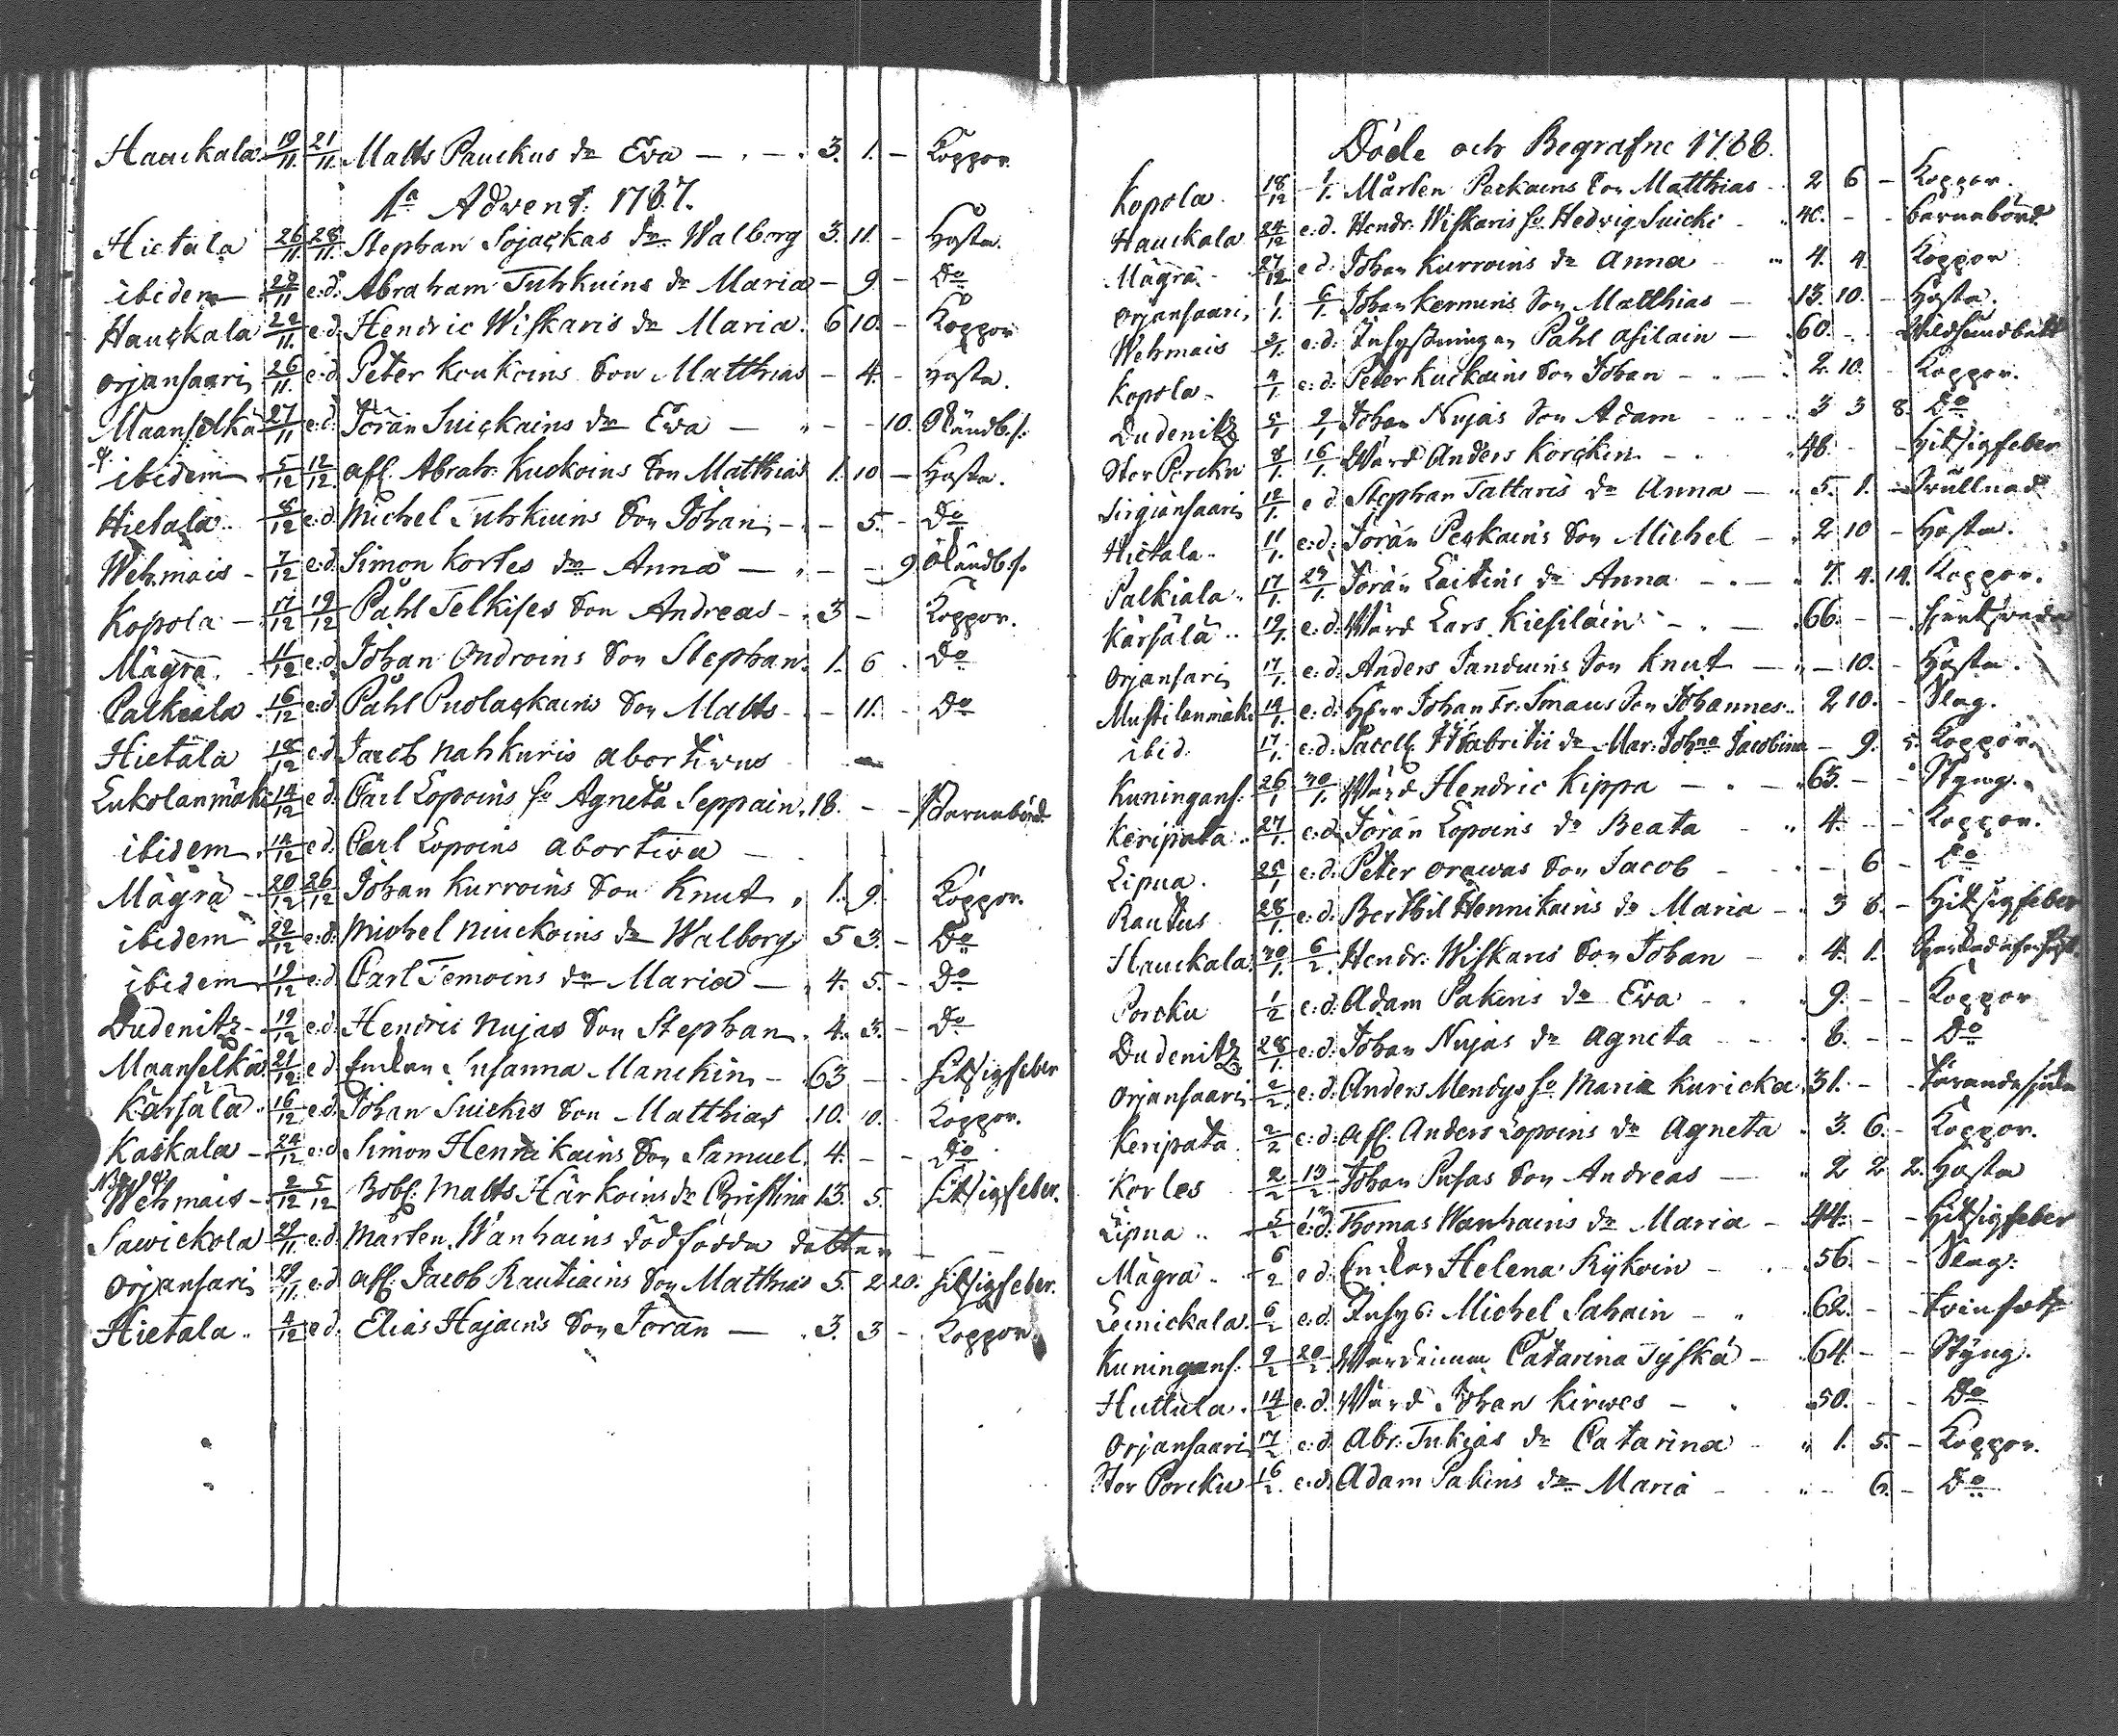 Hauckala 19/11 21/11 Matts Pauckus dr Eva — 3. 1. — Koppor.
1a Advent: 1787.
Hietala 26/11 28/11 Stephan Sojackas dr Walborg 3. 11. — Hosta.
ibidem 22/11 e:d: Abraham Tuhkuins dr Maria — 9 — Do
Hauckala 22/11 e:d: Hendric Wiskaris dr Maria. 6 10. — Koppor
Orjansaari 26/11 e:d: Peter Koukoins Son Matthias — 4. — Hosta.
Maanselkä 27/11 e:d: Jöran Suickains dr Eva — — — 10.
ibidem 5/12 12/12 afl. Abrah: Kuckoins Son Matthias 1. 10 — Hosta.
Hietala 8/12 e:d: Michel Tuhkuins Son Johan — — 5. — Do
Wehmais 7/12 e:d: Simon Kortes dr Anna — — — 9.
Kopola 17/12 19/12 Påhl Telkises Son Andreas — 3 — Koppor.
Mägrä 11/12 e:d: Johan Ondroins Son Stephan 1. 6 . Do
Palkiala 16/12 e:d: Påhl Puolackains Son Matts — — 11. — Do
Hietala 18/12 e:d: Jacob Nahkuris abortivus —
Lukolanmäki 14/12 e:d: Carl Lopoins fr Agneta Seppain. 18. — — Barnabörd
ibidem 14/12 e:d: Carl Lopoins abortiva —
Mägrä 20/12 26/12 Johan Kurroins Son Knut 1. 9. Koppor.
ibidem 22/12 e:d: Michel Niuckoins dr Walborg 5 3. — Do
ibidem 19/12 e:d: Carl Temoins dr Maria — 4. 5. — Do
Dudenitz 19/12 e:d: Hendric Nujas Son Stephan 4. 3. — Do
Maanselkä 21/12 e:d: Enckan Susanna Manckin — 63 — — Hitsigfeber
Kärsälä 16/12 e:d: Johan Suickis Son Matthias 10. 0. — Koppor.
Kaskala 24/12 e:d: Simon Hennikains Son Samuel. 4. — — Do
Wehmais 2/12 5/12 Matts Härkoins dr Christina 13. 5. Hitsigfeber.
Sawickola 29/11 e:d: Mårten Wanhains dödfödda dotter —
Orjansari 29/11 e:d: afl. Jacob Rautiains Son Matthias 5. 2 20. Hitsigfeber.
Hietala 4/12 e:d: Elias Hajains Son Jöran — 3. 3 — Koppor.
Döde och Begrafne 1788.
Kopola 18/12 1/1. Mårten Peckains Son Matthias 2 6 — Koppor.
Hauckala 24/12 e:d. Hendr: Wiskaris fr Hedvig Suicki 40. — — Barnabörd
Mägrä 27/12 e d: Johan Kurroins dr Anna 4. 4. Koppor
Orjansaari 1/1. 6/1. Johan Kernuris Son Matthias — 13. 10. — Hosta.
Wehmais 3/1. e:d: Påhl Asilain — 60. —
Kopola 4/1. e:d: Peter Kuckains Son Johan — 2. 10. Koppor.
Dudenitz 5/1 9/1 Johan Nujas Son Adam — 3 3 8. Do
Stor Porcku 8/1 16/1. Wärd Anders Korckin — 48. — — Hitsigfeber
e d: Stephan Tattaris dr Anna — 5. 1.
Hietala 11/1. e:d: Jöran Peckains Son Michel — 2 10 — Hosta.
Palkiala 17/1. 23/1 Jöran Laitins dr Anna — 7. 4. 14. Koppor.
Kärsälä 19/1. e:d: Wärd Lars Kiesiläin — 66. — —
Orjansari 17/1. e:d: Anders Janduins Son Knut — — 10. — Hosta.
Mustilanmäki 14/1. e:d: Herr Johan Fr: Smaus Son Johannes. 2 10. — Slag.
ibid. 17/1. e:d. dr Mar: Johna Jacobina — 9. 5. Koppor.
Kuningans: 26/1 30/1. Wärd Hendric Kippa — 63. — — Styng.
Keripata 27/1. e:d. Jöran Lopoins dr Beata 4. — — Koppor.
Lipua 25/1 e:d: Peter Orawas Son Jacob — — 6 — Do
Rautus 28/1. e:d: Berthil Hennikains dr Maria — 3 8. — Hitsigfeber
Hauckala 30/1. 6/2. Hendr: Wiskaris Son Johan — 4. 1.
Porcku 1/2 e:d: Adam Pakins dr Eva 9. — — Koppor
Dudenitz 28/1. e:d: Johan Nujas dr Agneta 8. — — Do
Orjansaari 2/2. e:d: Anders Mendys fr Maria Kuricka 31. — —
Keripata 2/2 e:d: afl. Anders Lopoins dr Agneta 3. 6. — Koppor.
Korles 2/2 13/2 Johan Pusas Son Andreas — 2 2 2. Hosta
Lipua 5/2 e:d: Thomas Wanhains dr Maria — 44. — — Hitsigfeber
Mägrä 6/2 e d: Enckan Helena Kykoin — 56. — — Slag.
Leinickala 6/2 e:d. Inhys: Michel Sahain — 62. — —
Kuningans: 9/2 20/2. Wärdinna Catarina Tyskä — 64. — — Styng.
Huttula 14/2 e:d. Wärd Johan Kirwes — 50. — — Do
Orjansaari 17/2 e:d. Abr: Tukias dr Catarina 1. 5. — Koppor.
Stor Porcku 16/2. e:d. Adam Pakins dr Maria — — 6. — Do